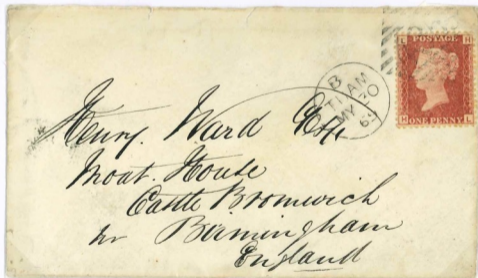 L H
POSTAGE
H L
ONE PENNY
B
AM
MY 20
Henry Ward Esq
Moat House
Castle Bromwich
nr Birmingham
England